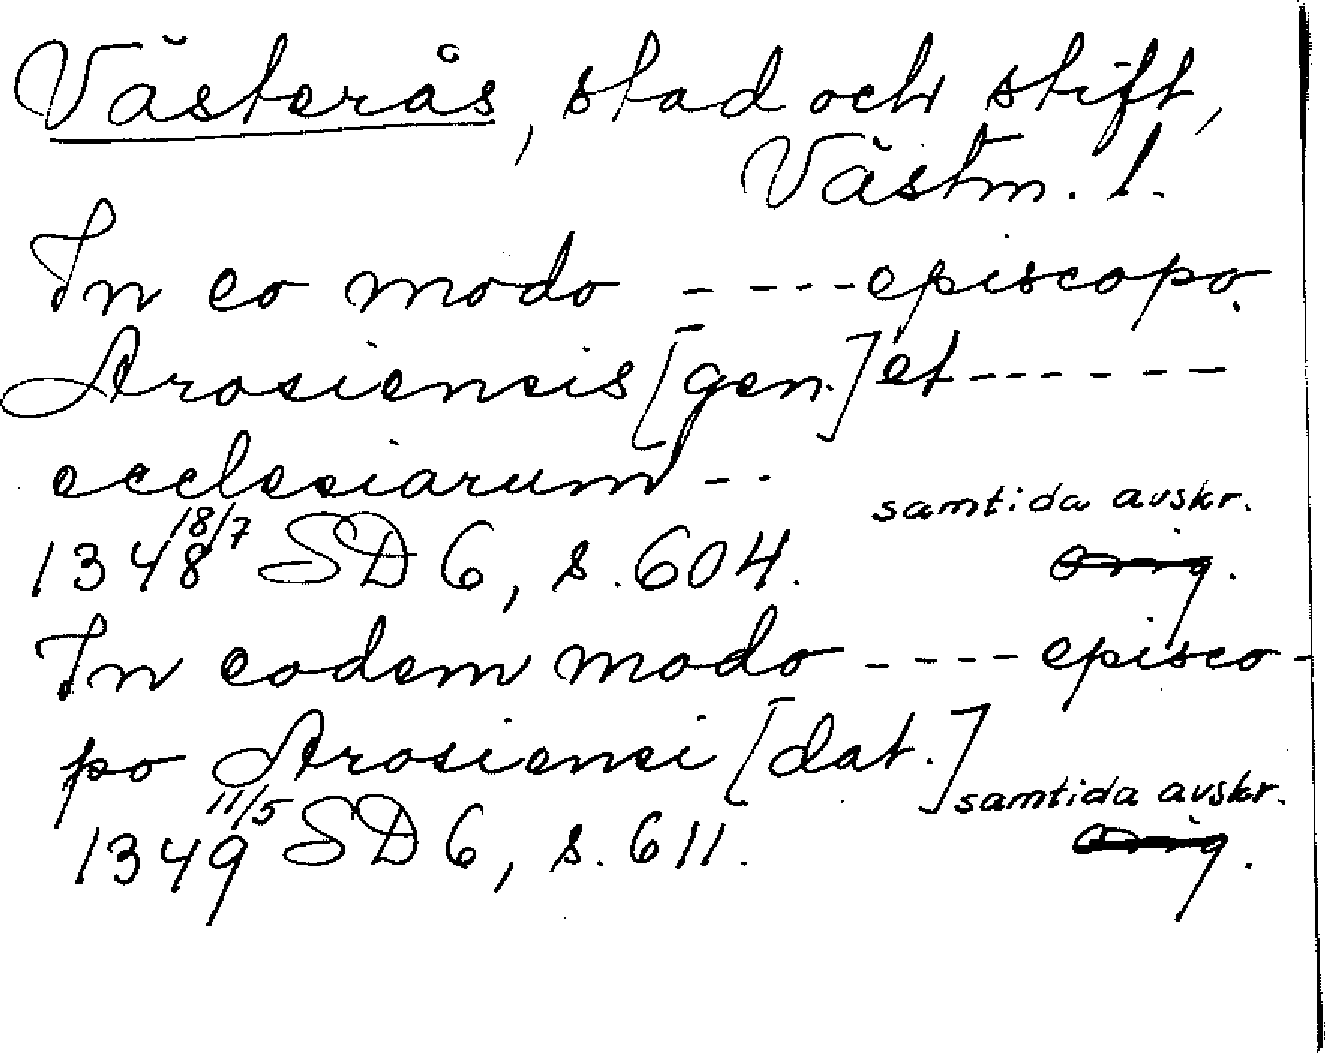 Västerås, stad och stift,
Västm. l.
In eo modo - - - - episcopo.
Arosiensis [gen.] et - - - - - -
ecclesiarum - - -
samtida avskr.
1348 18/7 SD 6, s. 604. orig.
In eodem modo - - - - episco-
po Arosiensi [dat.]
samtida avskr.
1349 11/5 SD 6, s. 611. orig.